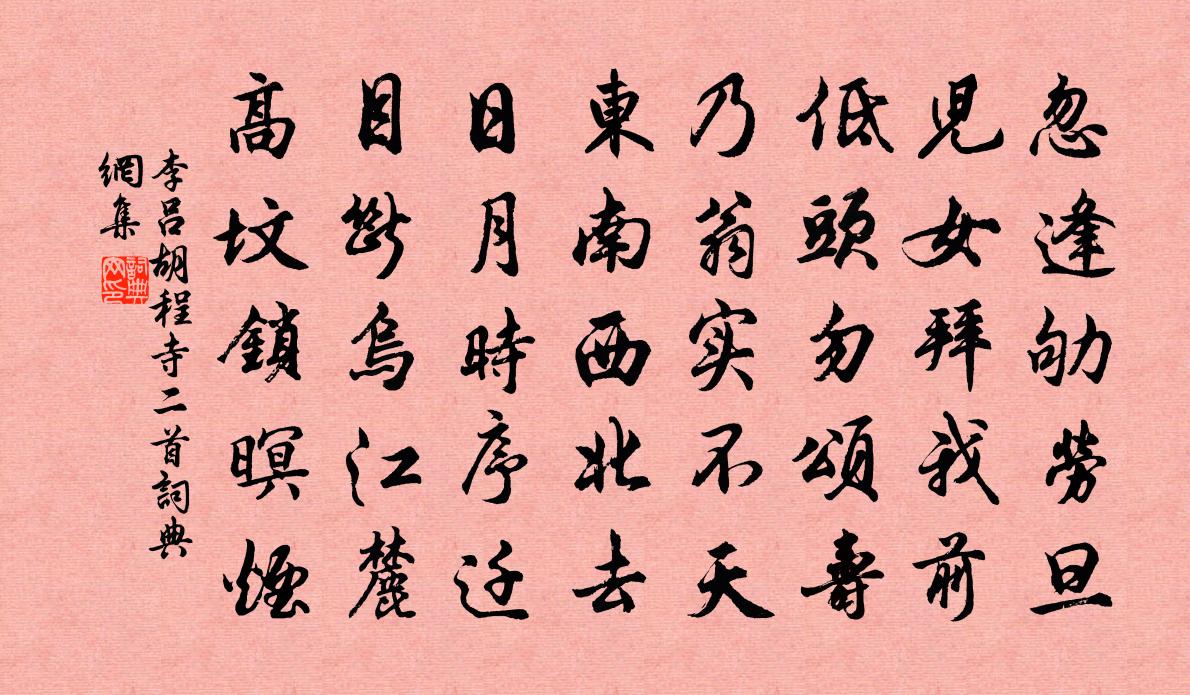 忽逢劬勞旦
兒女拜我前
低頭勿頌壽
乃翁实不天
東南西北去
日月時序迁
目斷烏江麓
高坟鎖暝煙
李呂胡程寺二首詞典
網集
詞典网印